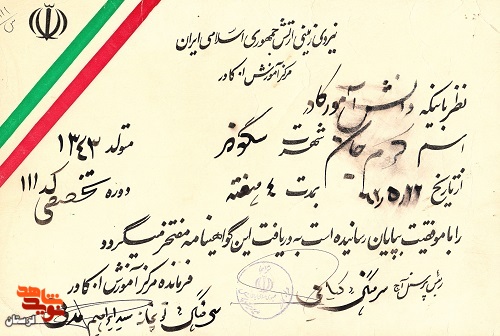 نیروی زمینی ارتش جمهوری اسلامی ایران
مرکز آموزش ۰۱ کادر
نظر باینکه دانش آموز کادر
اسم کرم جان شهرت سگوند متولد ۱۳۴۳
از تاریخ ۶۱٫۵٫۱۶ بمدت ۴ هفته دوره تخصصی کد ۱۱۱
را با موفقیت بپایان رسانیده است به دریافت این گواهینامه مفتخر میگردد
رئیس پرسنلی آج سرهنگ فرمانده مرکز آموزش ۰۱ کادر
سید ابراهیم
شاهد
نوید
لرستان